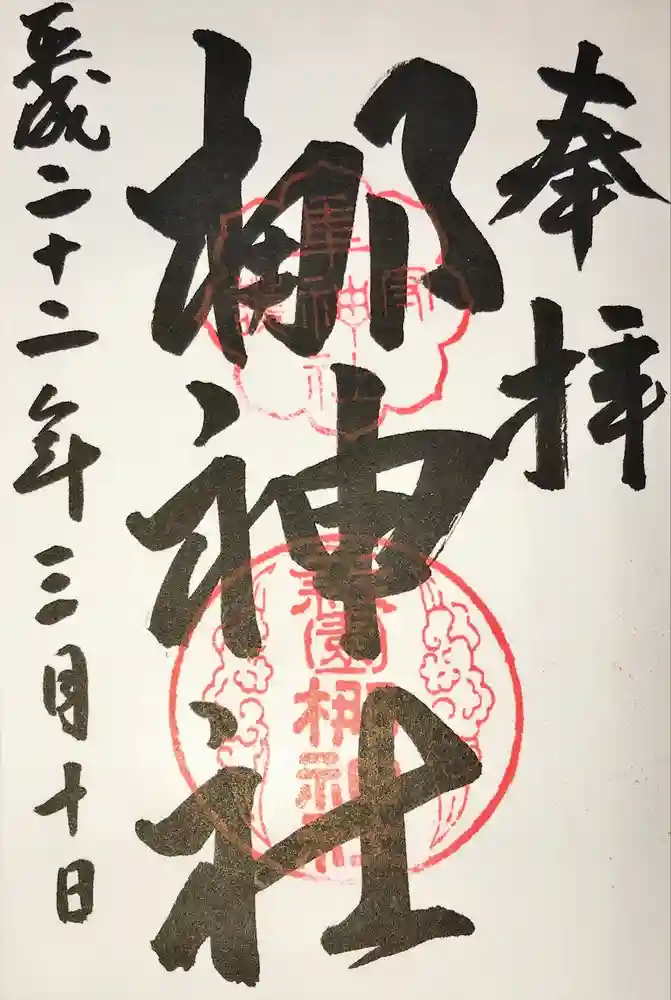 奉拝
梛神社
隼神社
梛神社
平成二十二年三月十日